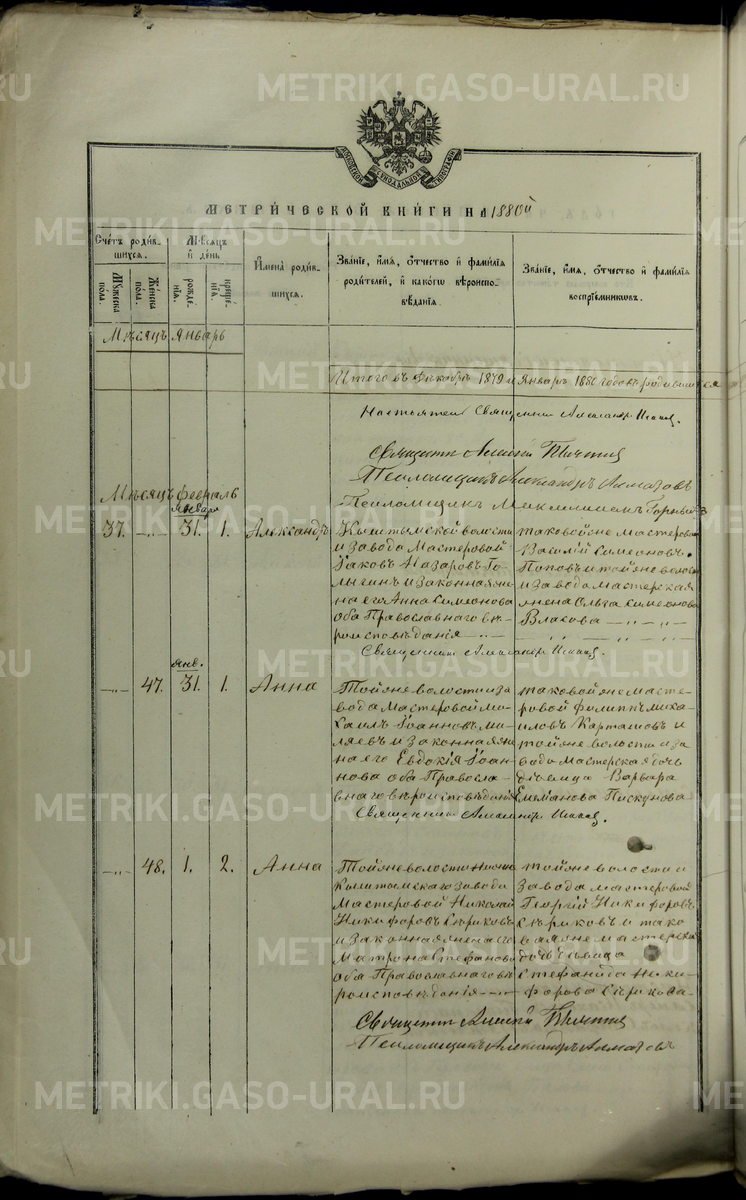 METRIKI.GASO-URAL.RU
МОСКОВСКОЙ СѴНОДАЛЬНОЙ ТИПОГРАФІИ
МЕТРИ́ЧЕСКОЙ КНИ́ГИ НА 1880й
Сче́тъ роди́в-
шихся.
Мꙋ́жеска по́ла.
Же́нска по́ла.
Мѣ́сяцъ и҆ де́нь
рожде́-
нїѧ.
креще́-
нїѧ.
И҆мена̀ роди́в-
шихся.
Зва́нїе, и҆́мѧ, ѻ҆́тчество и҆ фами́лїѧ
роди́телей, и҆ како́гѡ вѣроиспо-
вѣ́данїѧ.
Зва́нїе, и҆́мѧ, ѻ҆́тчество и҆ фами́лїѧ
воспрїе́мникѡвъ.
Мѣсяцъ Январь
Итого въ Декабрѣ 1879 и Январѣ 1880 годовъ родившихся
Священникъ Алексій
Псаломщикъ Александръ Алматовъ
Мѣсяцъ Февраль
Псаломщикъ
Января
37. —„— 31. 1. Александръ
Кыштымской волости
и завода Мастеровой
Іаковъ Назаровъ Го-
лыгинъ и законная же-
на его Анна Симеонова
оба Православнаго вѣ-
роисповѣданія —„—
таковой же мастеровой
Василій Симеоновъ
Поповъ и той же волости
и завода мастерская
жена Ольга Симеонова
Власова —„—„—
Священникъ Александръ
янв.
—„— 47. 31. 1. Анна
Той же волости и за
вода Мастеровой Ми-
хаилъ Іоанновъ Ми-
ляевъ и законная же
на его Евдокія Іоан-
нова оба Правосла-
внаго вѣроисповѣданія
таковой же масте-
ровой Филиппъ Миха
иловъ Карташовъ и
той же волости и за
вода мастерская дочь
дѣвица Варвара
Емельянова Пискунова
Священникъ Александръ
—„— 48. 1. 2. Анна
Той же волости Нижне
Кыштымскаго завода
Мастеровой Николай
Никифоровъ Сѣриковъ
и законная жена его
Матрона Стефанова
оба Православнаго вѣ
роисповѣданія —„—
той же волости и
завода мастеровой
Георгій Никифоровъ
Сѣриковъ и тако
вая же мастерская
дочь дѣвица
Стефанида Ники-
форова Сѣрикова
Священникъ Алексій
Псаломщикъ Александръ Алматовъ